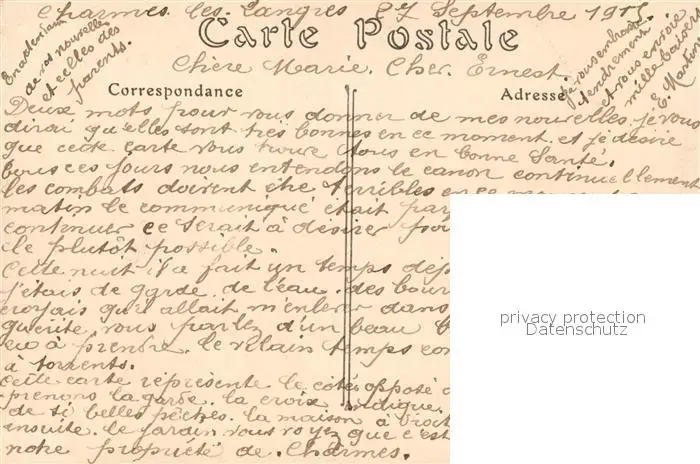 Charmes les Langres 27 Septembre 1915
Carte Postale
En attendant
de vos nouvelles
et celles des
parents.
Je vous embrasse
tendrement
et vous envoie
mille baisers
E. Martin
Chère Marie. Cher Ernest.
Correspondance
Adresse
Deux mots pour vous donner de mes nouvelles je vous
dirai qu'elles sont très bonnes en ce moment et je désire
que cette carte vous trouve tous en bonne Santé.
tous ces jours nous entendons le canon continuellement
les combats doivent être terribles en ce
matin le communiqué était
continuer ce serait à désirer
le plutôt possible.
Cette nuit il a fait un temps
j'étais de garde de l'eau des
croyais que allait m'enlever dans
guérite vous parlez d'un beau
eu à prendre. le vilain temps
à torrents.
Cette carte représente le côté opposé
prenons la garde. la croix indique
de si belles pêches. la maison à
ensuite. le jardin vous voyez que c'est
notre propriété de Charmes.
privacy protection
Datenschutz